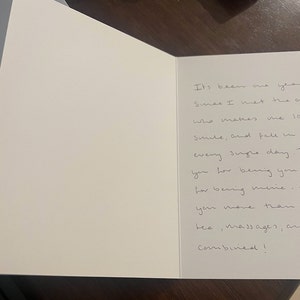 It's been one yea
since I met the
who makes me l
smile, and fall in
every single day. T
you for being you
for being mine.
you more than
tea, massages, an
combined!